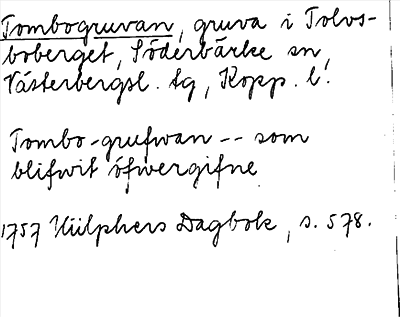 Tombogruvan, gruva i Tolvs-
boberget, Söderbärke sn,
Västerbergsl. tg, Kopp. l.
Tombo-grufwan -- som
blifwit öfwergifne
1757 Hülphers Dagbok, s. 578.